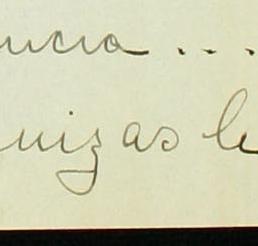 ucia ....
uizas le